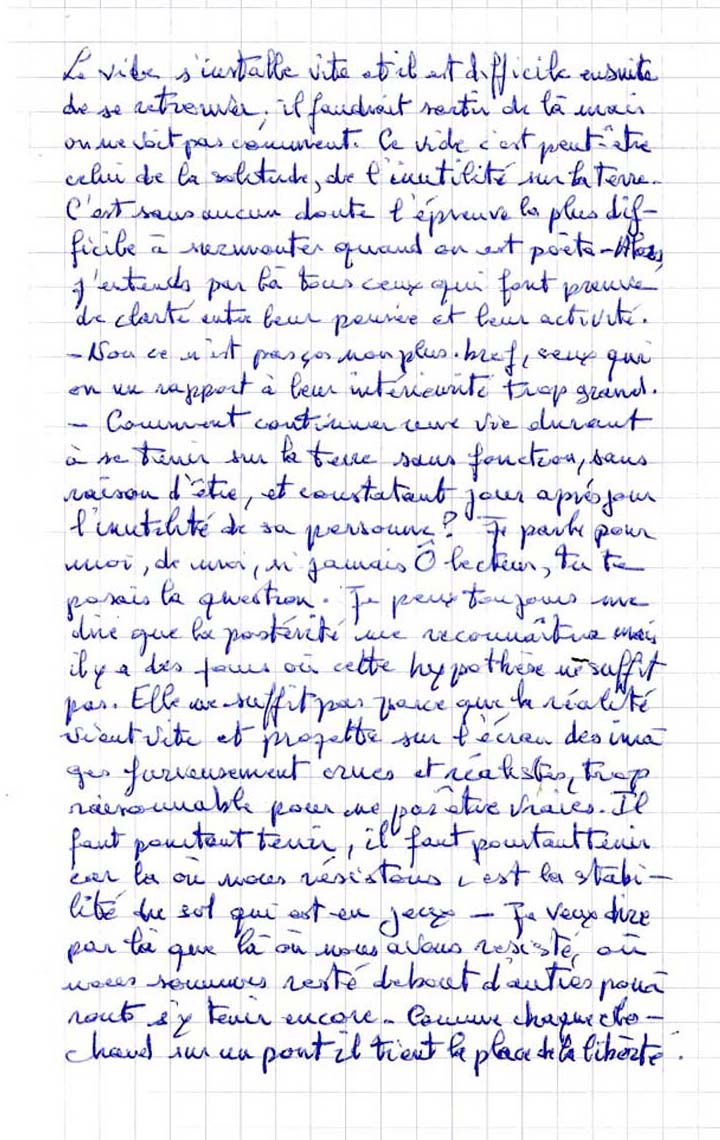 Le vide s'installe vite et il est difficile ensuite
de se retrouver, il faudrait sortir de là mais
on ne voit pas comment. Ce vide c'est peut-être
celui de la solitude, de l'inutilité sur la terre.
C'est sans aucun doute l'épreuve la plus dif-
ficile à surmonter quand on est poète - Alors,
j'entends par là tous ceux qui font preuve
de clarté entre leur pensée et leur activité.
- Non ce n'est pas ça non plus. bref, ceux qui
on un rapport à leur intériorité trop grand.
- Comment continuer une vie durant
à se tenir sur la terre sans fonction, sans
raison d'être, et constatant jour après jour
l'inutilité de sa personne ? Je parle pour
moi, de moi, si jamais Ô lecteur, tu te
posais la question. Je peux toujours me
dire que la postérité me reconnaîtra mais
il y a des jours où cette hypothèse ne suffit
pas. Elle ne suffit pas parce que la réalité
vient vite et projette sur l'écran des ima
ges furieusement crues et réalistes, trop
raisonnable pour ne pas être vraies. Il
faut pourtant tenir, il faut pourtant tenir
car là où nous résistons c'est la stabi-
lité du sol qui est en jeux - Je veux dire
par là que là où nous avons resisté, où
nous sommes resté debout d'autres pour
ront s'y tenir encore. Comme chaque clo-
chard sur un pont il tient la place de la liberté.